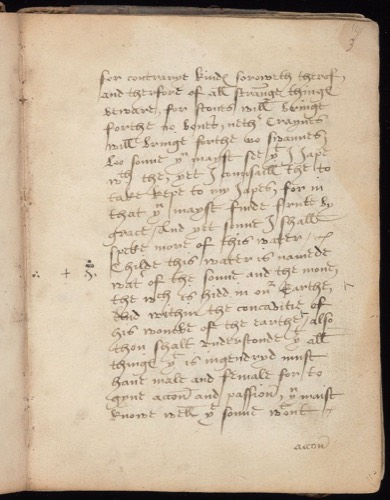 3
for contrarye kindes soroweth therof,
and therfore of all strange things
beware, for stones will bringe
forthe no bones, nethr Craynes
will bringe forthe no swannes,
Loo sonne yu mayst see yt I Jape
wth the, yet I counsaill the to
take kepe to my Japes, for in
that yu mayst finde frute by
grace, And yet sonne I shall
speke more of this water,
Childe this water is namede
wat of the sonne and the mone,
the wch is hidd in our Earthe,
and within the concavitie of
his wombe of the earthe, also
thou shalt understonde yt all
thinge yt is ingendryd must
have male and female for to
gyve accon and passion, yu maist
knowe well yt sonne wont
accon